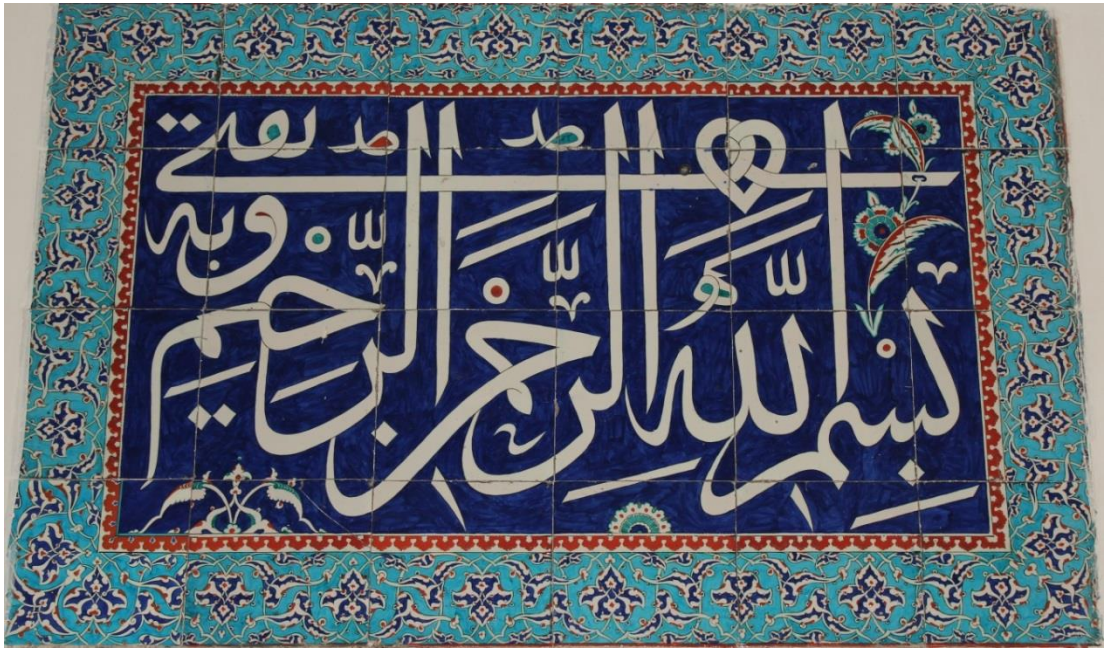 بسم الله الرحمن الرحيم
وبه ثقتى